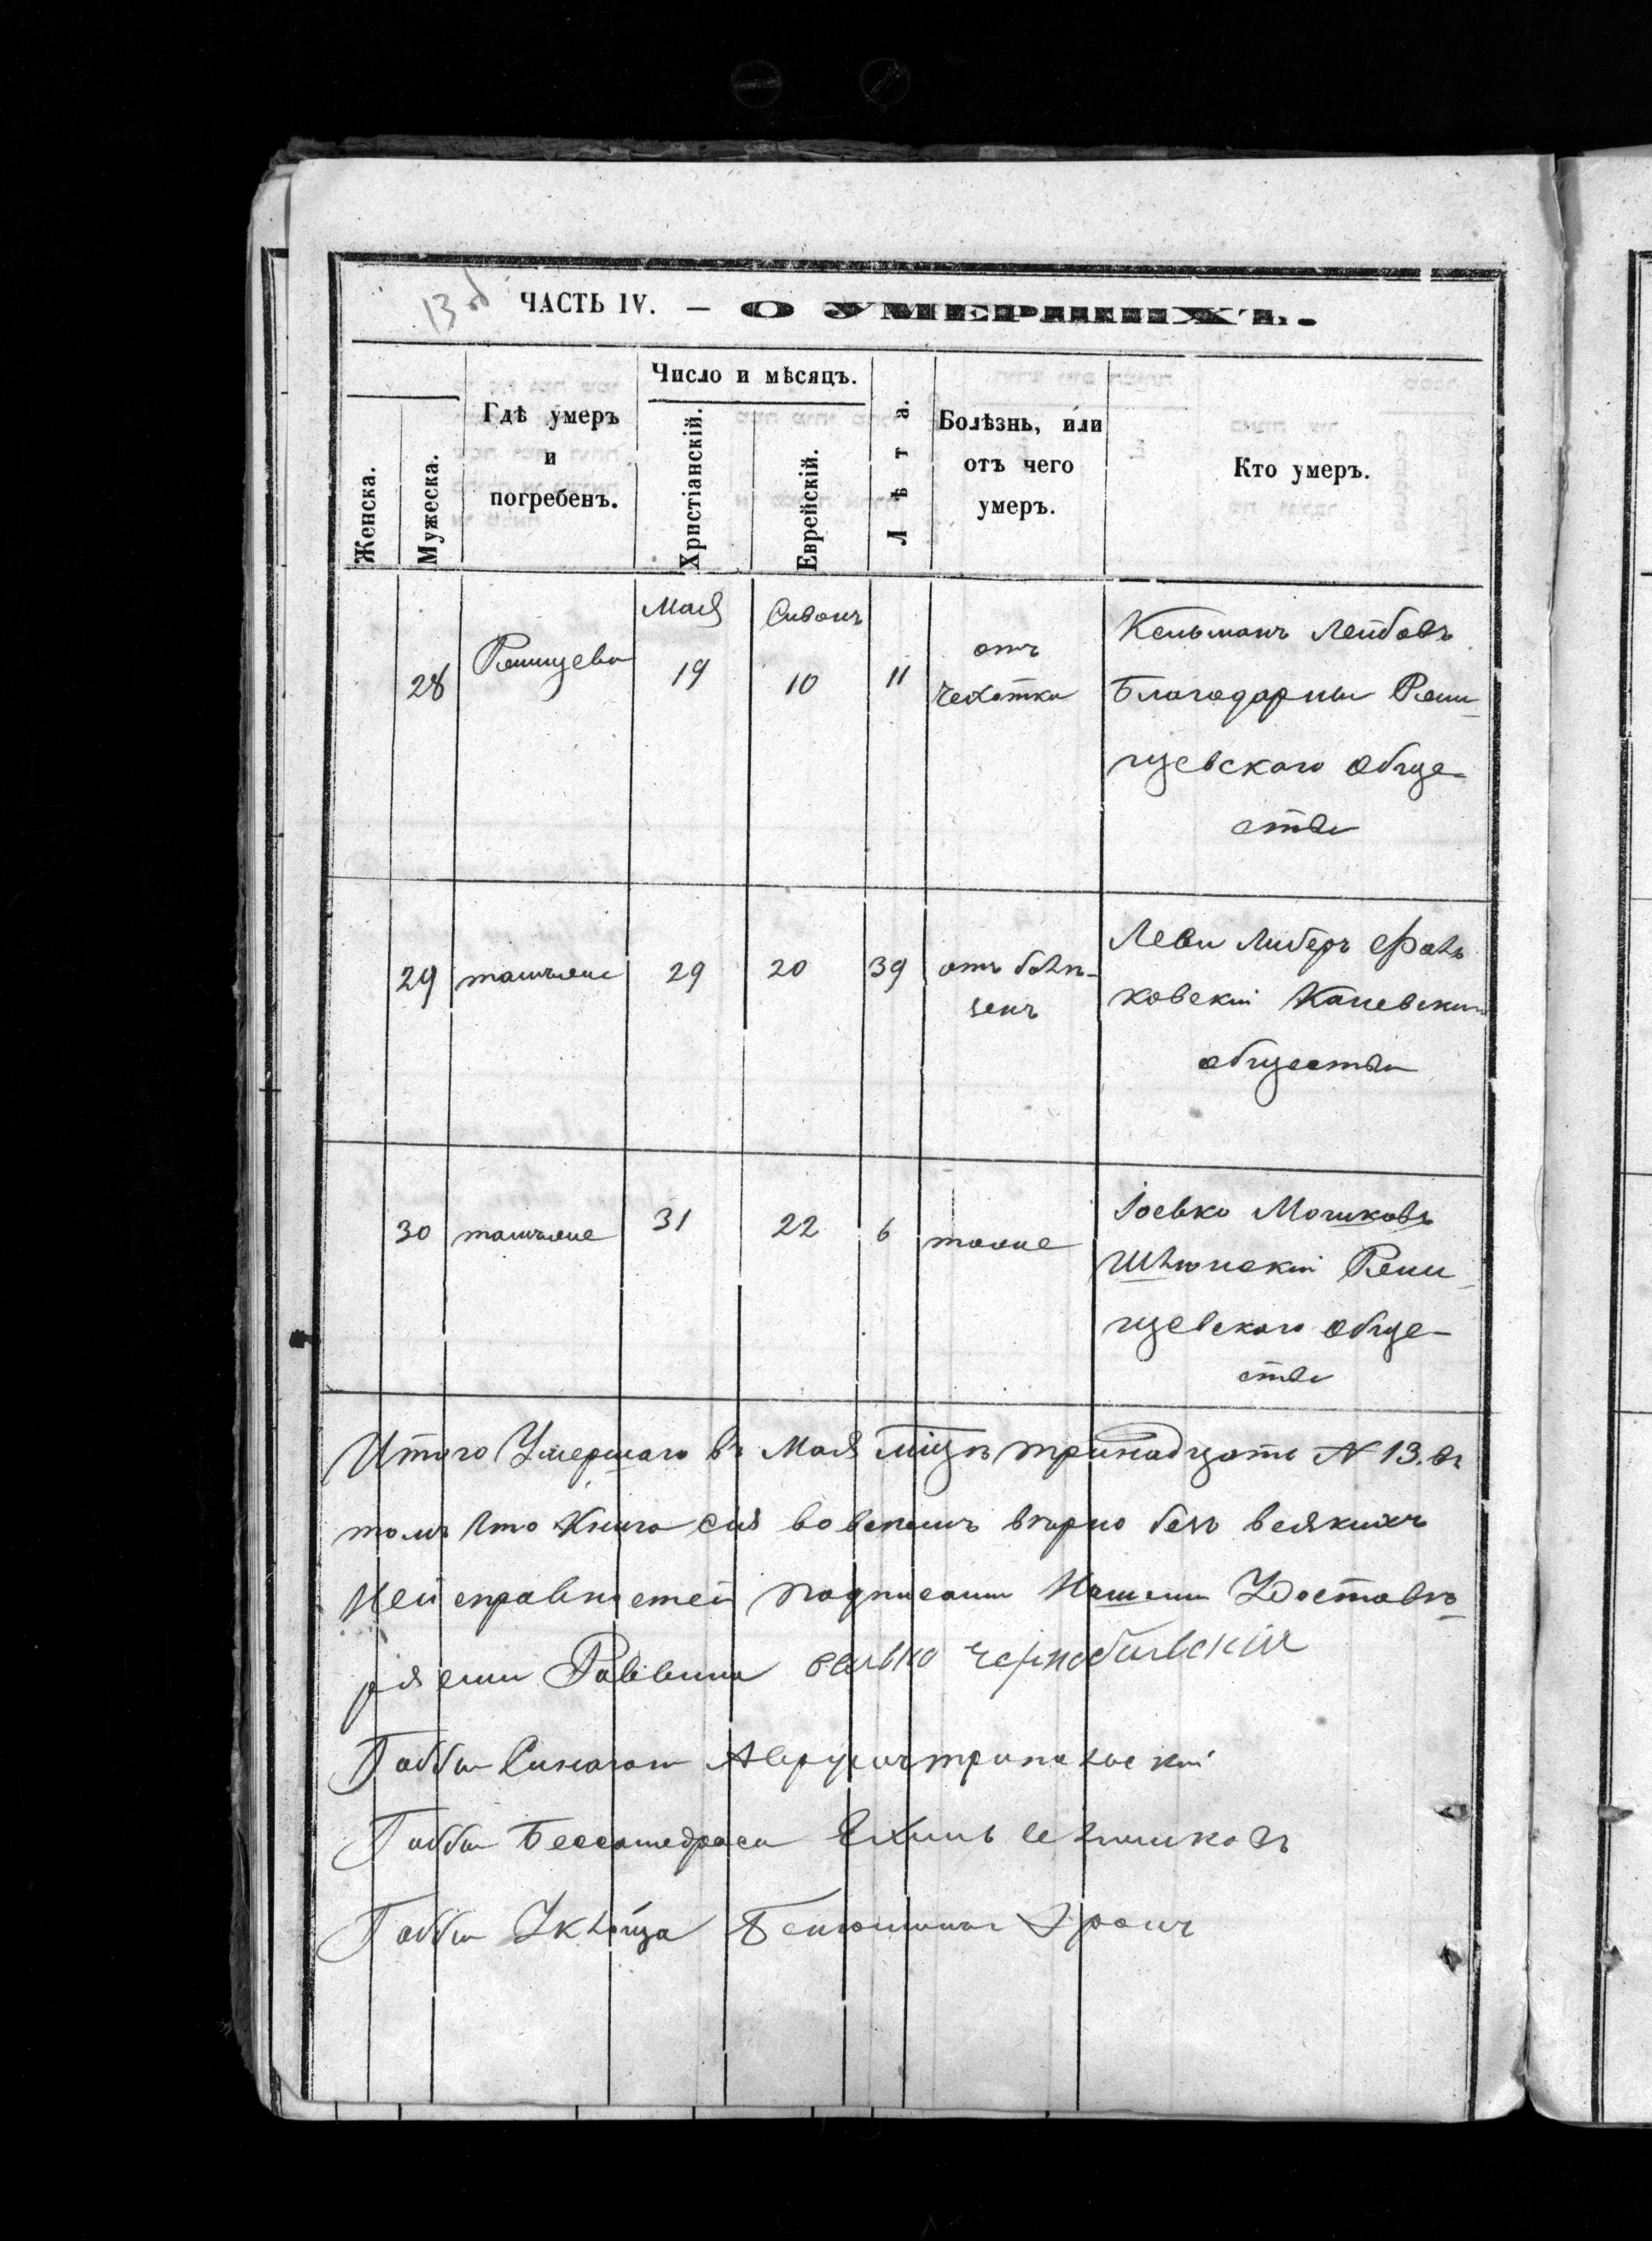 13 об
ЧАСТЬ IV. — О УМЕРШИХЪ.
Женска.
Мужеска.
Гдѣ умеръ
и
погребенъ.
Число и мѣсяцъ.
Христіанскій.
Еврейскій.
Лѣта.
Болѣзнь, или
отъ чего
умеръ.
Кто умеръ.
Мая
Сиванъ
28
Ржищево
19
10
11
отъ
чехотки
Кельманъ Лейбовъ
Благодарный Ржи-
щевскаго обще-
ства
29
тамъже
29
20
39
Леви Либеръ
ковскій Каневскаго
общества
30
тамъже
31
22
6
тоже
Іосько Мошковъ
Ржи-
щевскаго обще-
ства
Итого Умершаго въ Мая тринадцать N 13. въ
томъ что Книга сия во всемъ вѣрно безъ всякихъ
Неисправностей подписами Нашеми Удостовѣ-
ряеми Раввинъ Чернобильскій
Габбаи Синагоги
Габбаи Бессамедраса
Габбаи